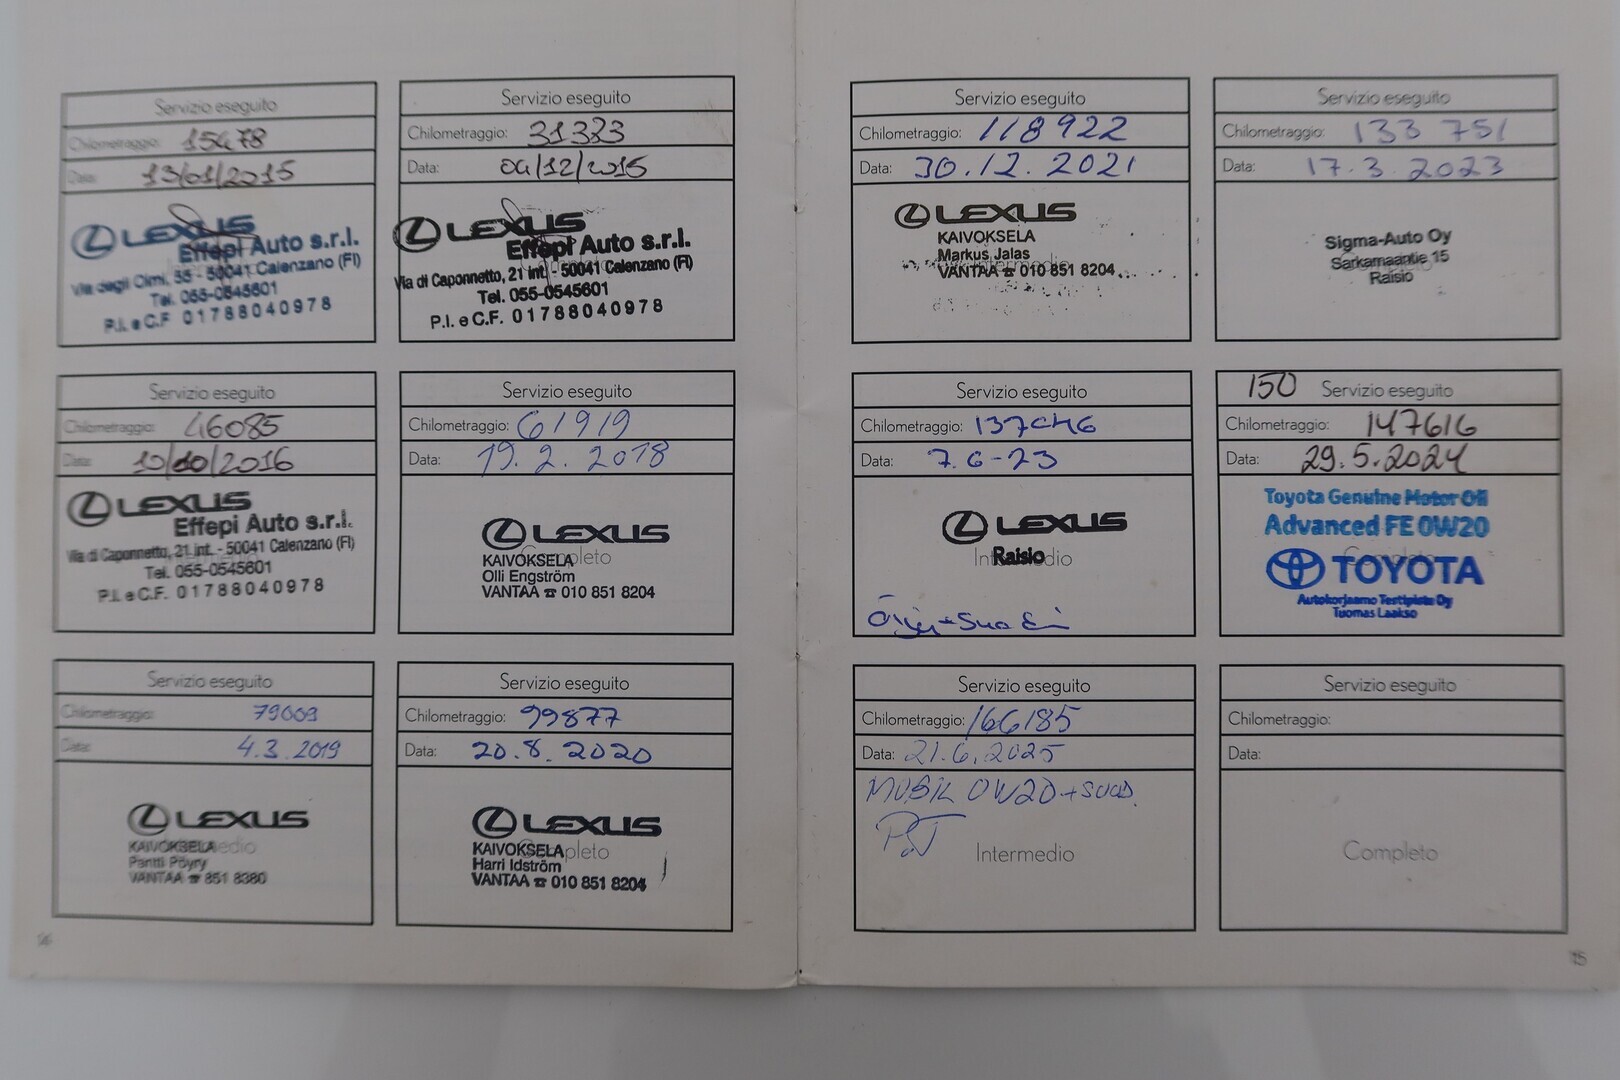 Servizio eseguito
Chilometraggio: 15478
Data: 13/01/2015
LEXUS
Effepi Auto s.r.l.
Via degli Olmi, 55 - 50041 Calenzano (FI)
Tel. 055-0545601
P.I. e C.F. 01788040978
Servizio eseguito
Chilometraggio: 31323
Data: 04/12/2015
LEXUS
Effepi Auto s.r.l.
Via di Caponnetto, 21 int. - 50041 Calenzano (FI)
Tel. 055-0545601
P.I. e C.F. 01788040978
Servizio eseguito
Chilometraggio: 46085
Data: 10/10/2016
LEXUS
Effepi Auto s.r.l.
Via di Caponnetto, 21 int. - 50041 Calenzano (FI)
Tel. 055-0545601
P.I. e C.F. 01788040978
Servizio eseguito
Chilometraggio: 61919
Data: 19.2.2018
LEXUS
KAIVOKSELA Completo
Olli Engström
VANTAA ☎ 010 851 8204
Servizio eseguito
Chilometraggio: 79003
Data: 4.3.2019
LEXUS
KAIVOKSELA
Pentti Pöyry
VANTAA ☎ 851 8380
Servizio eseguito
Chilometraggio: 99877
Data: 20.8.2020
LEXUS
KAIVOKSELA Completo
Harri Idström
VANTAA ☎ 010 851 8204
14
Servizio eseguito
Chilometraggio: 118922
Data: 30.12.2021
LEXUS
KAIVOKSELA
Markus Jalas
VANTAA ☎ 010 851 8204
Intermedio
Servizio eseguito
Chilometraggio: 133 751
Data: 17.3.2023
Sigma-Auto Oy
Sarkamaantie 15
Raisio
Servizio eseguito
Chilometraggio:
Data: 7.6-23
LEXUS
Raisio
Intermedio
150 Servizio eseguito
Chilometraggio: 147616
Data: 29.5.2024
Toyota Genuine Motor Oil
Advanced FE 0W20
Completo
TOYOTA
Autokorjaamo Testipiste Oy
Tuomas Laakso
Servizio eseguito
Chilometraggio: 166185
Data: 21.6.2025
MOBIL 0W20 + SUOD.
Intermedio
Servizio eseguito
Chilometraggio:
Data:
Completo
15